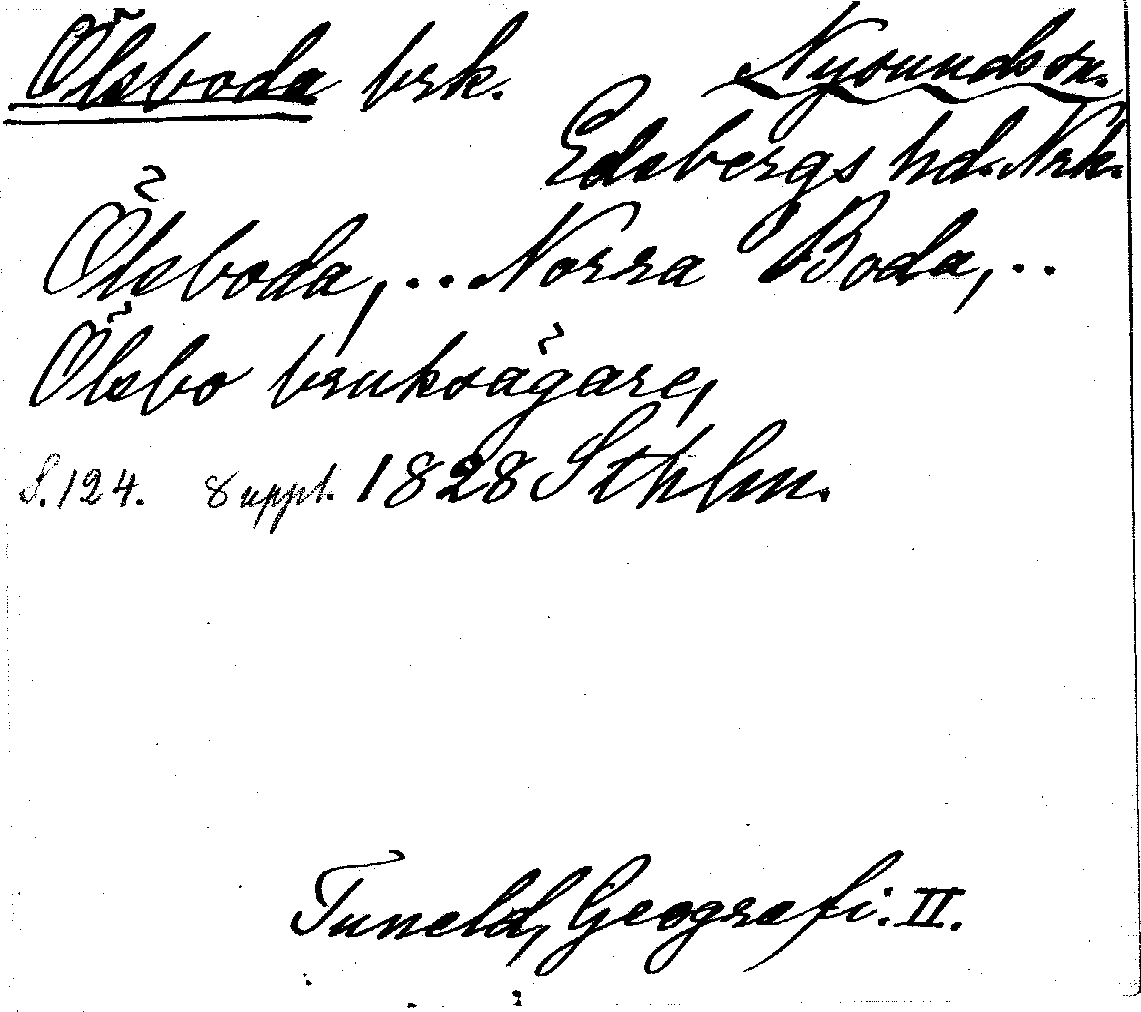 Ölsboda brk. Nysunds sn.
Edsbergs hd. Nrk.
Ölsboda, .. Norra Boda, ..
Ölsbo bruksägare,
S. 124. 8 uppl. 1828 Sthlm.
Tuneld, Geografi. II.